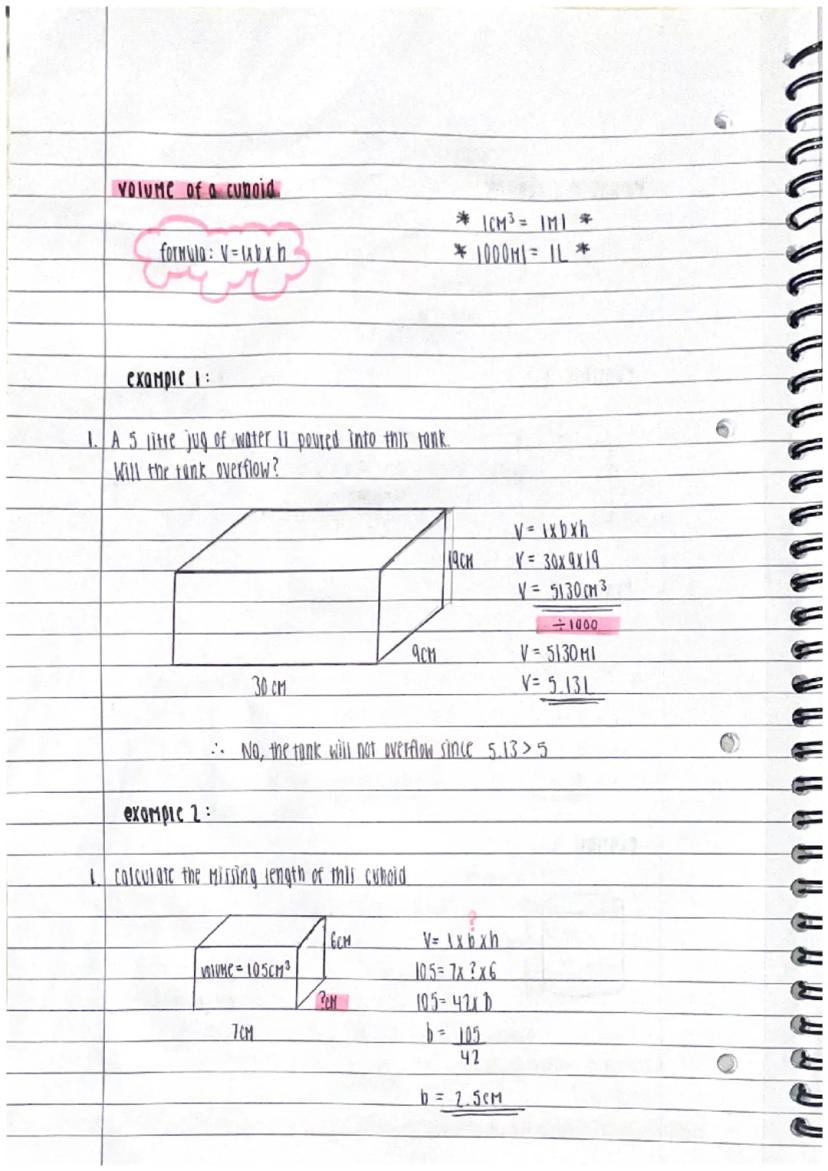 volume of a cuboid
formula: V=lxbxh
* 1cm³ = 1ml *
* 1000ml = 1L *
example 1:
1. A 5 litre jug of water is poured into this tank.
Will the tank overflow?
19cm
9cm
30 cm
V = lxbxh
V = 30x9x19
V = 5130cm³
÷1000
V = 5130ml
V = 5.13L
∴ No, the tank will not overflow since 5.13 > 5
example 2:
1. calculate the missing length of this cuboid
6cm
volume = 105cm³
?cm
7cm
?
V = lxbxh
105 = 7x?x6
105 = 42xb
b = 105
42
b = 2.5cm